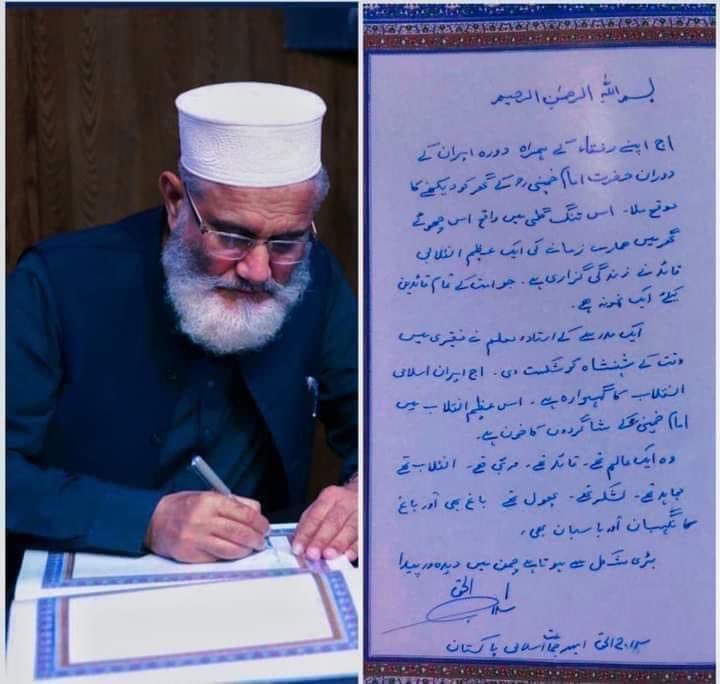 بسم اللہ الرحمٰن الرحیم
آج اپنے رفقاء کے ہمراہ دورہ ایران کے
دوران حضرت امام خمینی رح کے گھر کو دیکھنے کا
موقع ملا۔ اس تنگ گلی میں واقع اس چھوٹے
گھر میں ہمارے زمانے کی ایک عظیم انقلابی
قائد نے زندگی گزاری ہے۔ جو امت کے تمام قائدین
کیلئے ایک نمونہ ہے۔
ایک مدرسے کے استاد و معلم نے فقیری میں
وقت کے شہنشاہ کو شکست دی۔ آج ایران اسلامی
انقلاب کا گہوارہ ہے۔ اس عظیم انقلاب میں
امام خمینی کے شاگردوں کا خون ہے۔
وہ ایک عالم تھے۔ قائد تھے۔ مربی تھے۔ انقلاب تھے
مجاہد تھے۔ لشکر تھے۔ پھول تھے باغ بھی اور باغ
کا نگہبان اور باسبان بھی۔
بڑی مشکل سے ہوتا ہے چمن میں دیدہ ور پیدا
سراج الحق
سراج الحق امیر جماعت اسلامی پاکستان